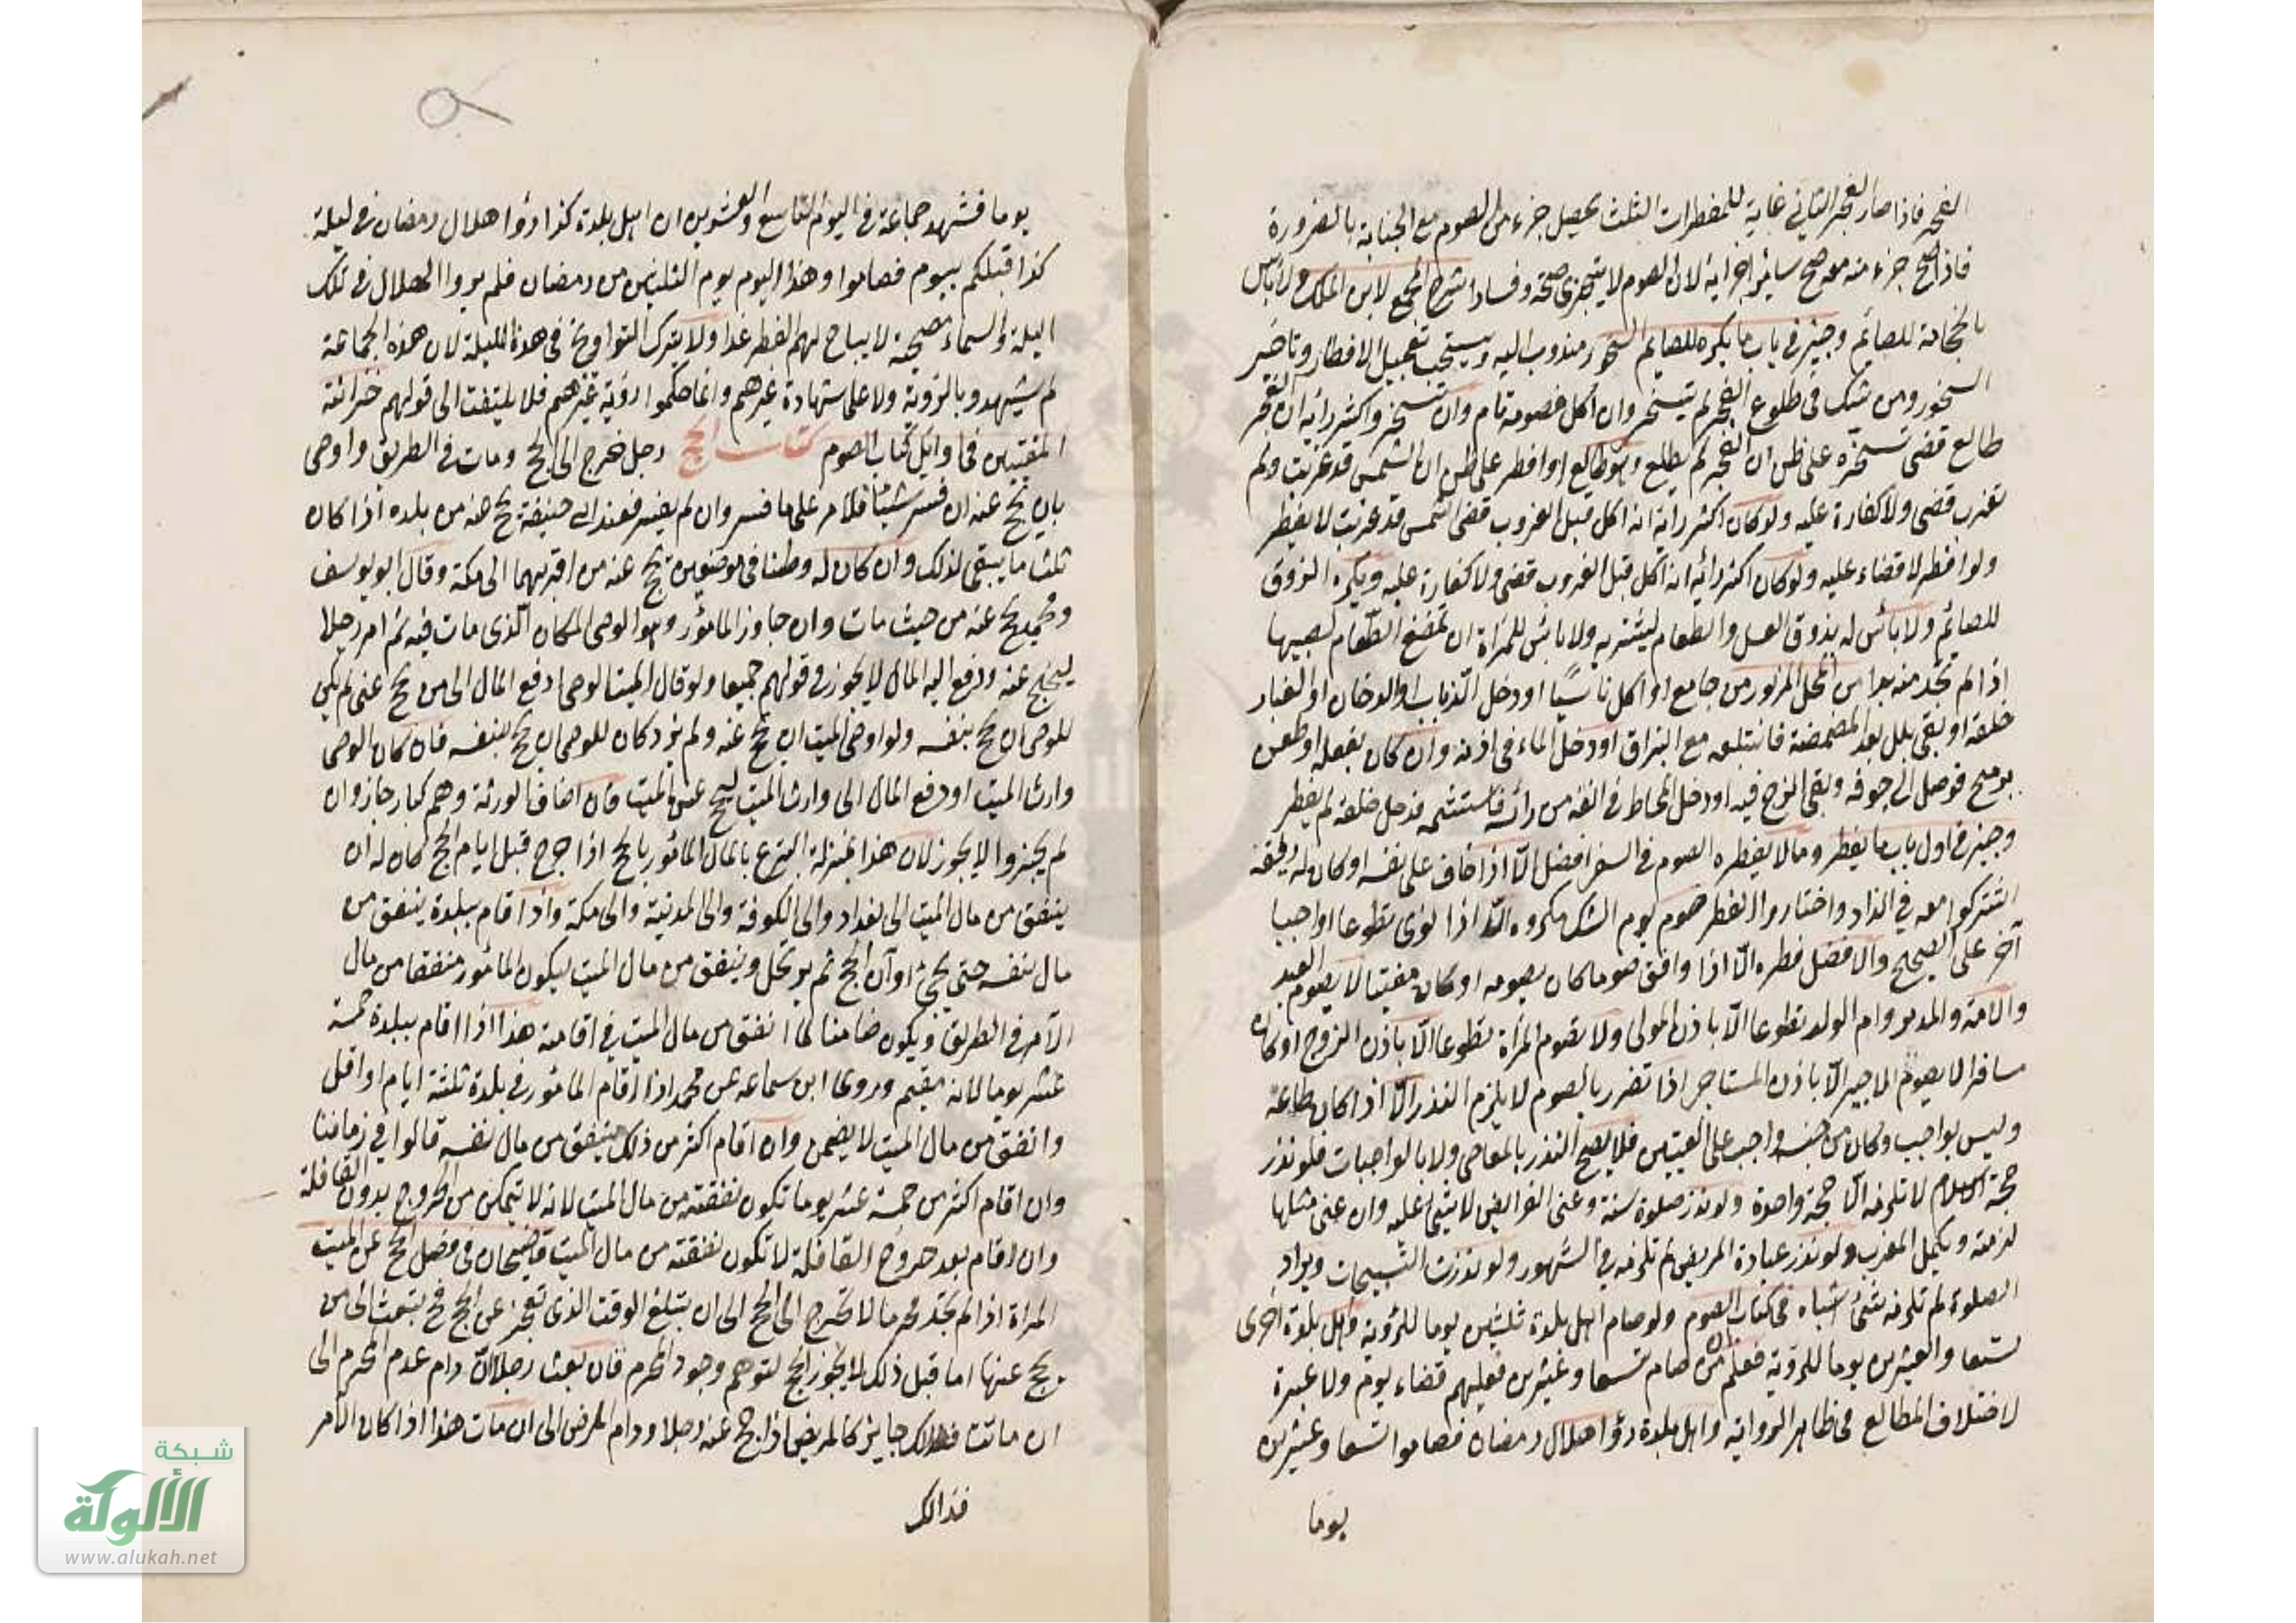 الفجر فاذا صار الفجر الثاني غاية للمفطرات الثلث يحصل جزء من الصوم مع الجنابة بالضرورة
فاذا صح جزء منه معه صح سائر اجزائه لان الصوم لا يتجزى صحة وفسادا شرح المجمع لابن الملك ولا باس
بالحجامة للصائم وجيز في باب ما يكره للصايم السحور مندوب اليه ويستحب تعجيل الافطار وتاخير
السحور ومن شك في طلوع الفجر لم يتسحر وان اكل فصومه تام وان تسحر واكثر رأيه ان الفجر
طالع قضى تسحره على ظن ان الفجر لم يطلع وهو طالع او افطر على ظن ان الشمس قد غربت ولم
تغرب قضى ولا كفارة عليه ولو كان اكثر رايه انه اكل قبل الغروب قضى شمس قد غربت لا يفطر
ولو افطر لا قضاء عليه ولو كان اكثر رائه انه اكل قبل الغروب قضى ولا كفارة عليه ويكره الذوق
للصائم ولا بأس له بذوق العسل والطعام ليشتريه ولا بأس للمرأة ان تمضغ الطعام لصبيها
اذا لم تجد منه بدا من المحل المزبور من جامع او اكل ناسيا او دخل الذباب او الدخان او الغبار
حلقه او بقي بلل بعد المضمضة فابتلعه مع البزاق او دخل الماء في اذنه وان كان بفعله او طعن
برمح فوصل الى جوفه وبقي الزج فيه او دخل المخاط في انفه من رأسه فاستشمه فدخل حلقه لم يفطر
وجيز في اول باب ما يفطر وما لا يفطره الصوم في السفر افضل الا اذا خاف على نفسه او كان له رفقة
اشتركوا معه في الزاد واختاروا الفطر صوم يوم الشك مكروه الا اذا نوى تطوعا او واجبا
آخر على الصحيح والافضل فطره الا اذا وافق صوما كان يصومه او كان مفتيا لا يصوم العبد
والامة والمدبر وام الولد تطوعا الا باذن المولى ولا تصوم المرأة تطوعا الا باذن الزوج او كان
مسافرا لا يصوم الاجير الا باذن المستاجر اذا تضرر بالصوم لا يلزم النذر الا اذا كان طاعة
وليس بواجب وكان من جنسه واجب على التعيين فلا يصح النذر بالمعاصي ولا بالواجبات فلو نذر
حجة الاسلام لا تلزمه الا حجة واحدة ولو نذر صلوة سنة وعنى الفرايض لا شئ عليه وان عنى مثلها
لزمته ويكمل المغرب ولو نذر عيادة المريض لم تلزمه في المشهور ولو نذرت التسبيحات ويراد
الصلوة لم تلزمه شئ اشباه في كتاب الصوم ولو صام اهل بلدة ثلثين يوما للرؤية واهل بلدة اخرى
تسعا والعشرين يوما للرؤية فعلم من صام تسعا وعشرين فعليهم قضاء يوم ولا عبرة
لاختلاف المطالع في ظاهر الرواية واهل بلدة رؤا هلال رمضان فصاموا تسعا وعشرين
يوما
يوما فشهد جماعة في اليوم التاسع والعشرين ان اهل بلدة كذا رؤا هلال رمضان في ليلة
كذا قبلكم بيوم فصاموا وهذا اليوم يوم الثلثين من رمضان فلم يروا الهلال في تلك
اليلة والسماء مصحية لا يباح لهم الفطر غدا ولا يترك التراويح في هذة الليلة لان هذه الجماعة
لم يشهدو بالرؤية ولا على شهادة غيرهم وانما حكموا رؤية غيرهم فلا يلتفت الى قولهم خزانة
المفتيين في اوائل كتاب الصوم كتاب الحج رجل خرج الى الحج ومات في الطريق واوصى
بان يحج عنه ان فسر شيئا فلامر على ما فسر وان لم يفسر فعند ابي حنيفة يحج عنه من بلده اذا كان
ثلث ما يبقى لذلك وان كان له وطنا في موضعين يحج عنه من اقربهما الى مكة وقال ابو يوسف
ومحمد يحج عنه من حيث مات وان جاوز المأمور وهو الوصي المكان الذي مات فيه ثم امر رجلا
ليحج عنه ودفع اليه المال لا يجوز في قولهم جميعا ولو قال الميت لوصي ادفع المال الى من يحج عني لم يكن
للوصي ان يحج بنفسه ولو اوصى الميت ان يحج عنه ولم يزد كان للوصي ان يحج بنفسه فان كان الوصي
وارث الميت او دفع المال الى وارث الميت ليحج عن الميت فان اضاف الورثة وهم كبار جاز وان
لم يجيزوا لا يجوز لان هذا بمنزلة التبرع بالمال المأمور بالحج اذا خرج قبل ايام الحج كان له ان
ينفق من مال الميت الى بغداد والى الكوفة والى المدينة والى مكة واذا اقام ببلدة ينفق من
مال نفسه حتى يجئ اوآن الحج ثم يرتحل وينفق من مال الميت ليكون المأمور منفقا من مال
الآمر في الطريق ويكون ضامنا لما انفق من مال الميت في اقامته هذا اذا اقام ببلدة خمسة
عشر يوما لانه مقيم وروى ابن سماعة عن محمد اذا اقام المأمور في بلدة ثلثة ايام او اقل
وانفق من مال الميت لا يضمن وان اقام اكثر من ذلك ينفق من مال نفسه قالوا في زماننا
وان اقام اكثر من خمسة عشر يوما تكون نفقته من مال الميت لانه لا يتمكن من الخروج بدون القافلة
وان اقام بعد خروج القافلة لا تكون نفقته من مال الميت قاضيخان في فصل الحج عن الميت
المراة اذا لم تجد محرما لا تخرج الى الحج الى ان يبلغ الوقت الذي تعجز عن الحج فح تبعث الى من
يحج عنها اما قبل ذلك لا يجوز الحج لتوهم وجود المحرم فان بعث رجلا ان دام عدم المحرم الى
ان ماتت فذلك جايز كالمريض اذا حج عنه رجلا ودام المرض الى ان مات هذا اذا كان الآمر
فذالك
شبكة
الألوكة
www.alukah.net